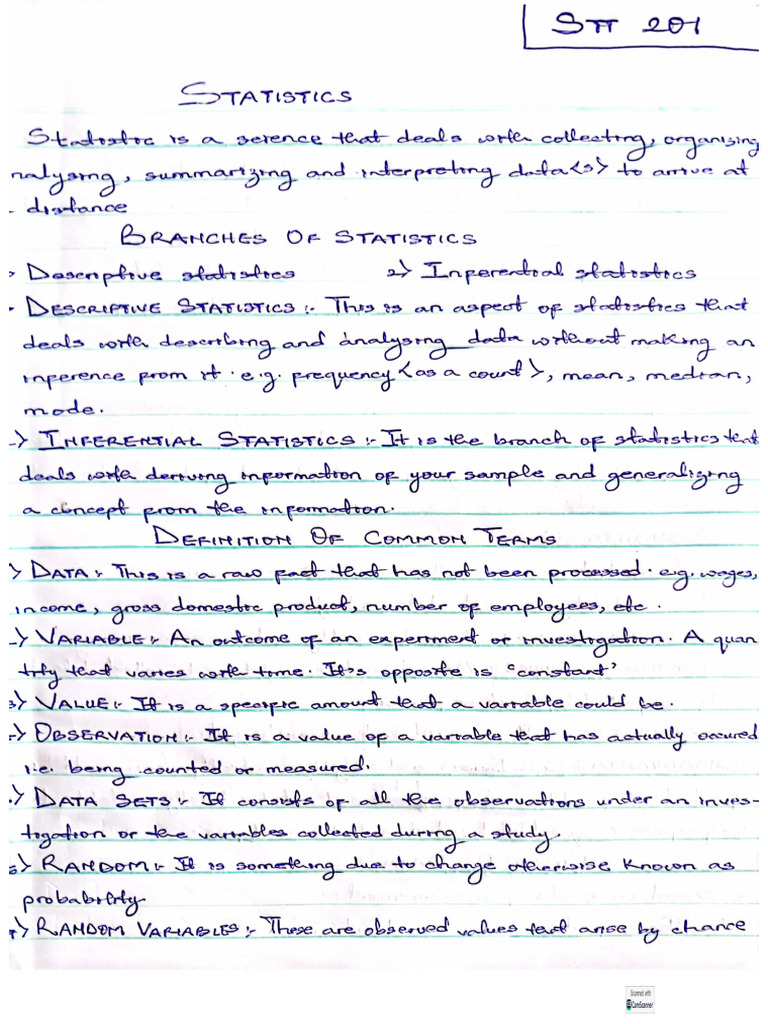 STT 201
STATISTICS
Statistic is a science that deals with collecting, organising
nalysing, summarizing and interpreting data<s> to arrive at
- distance
BRANCHES OF STATISTICS
> Descriptive statistics 2> Inferential statistics
- DESCRIPTIVE STATISTICS :- This is an aspect of statistics that
deals with describing and analysing data without making an
inference from it. e.g. frequency <as a count>, mean, median,
mode.
-> INFERENTIAL STATISTICS :- It is the branch of statistics that
deals with deriving information of your sample and generalizing
a concept from the information.
DEFINITION OF COMMON TERMS
> DATA :- This is a raw fact that has not been processed. e.g. wages,
income, gross domestic product, number of employees, etc.
-> VARIABLE :- An outcome of an experiment or investigation. A quan
tity that varies with time. It's opposite is 'constant'
3> VALUE :- It is a specific amount that a variable could be.
-> OBSERVATION :- It is a value of a variable that has actually occured
i.e. being counted or measured.
.> DATA SETS :- It consists of all the observations under an inves-
tigation or the variables collected during a study.
6> RANDOM :- It is something due to change otherwise known as
probability
7> RANDOM VARIABLES :- These are observed values that arise by chance
Scanned with
CamScanner